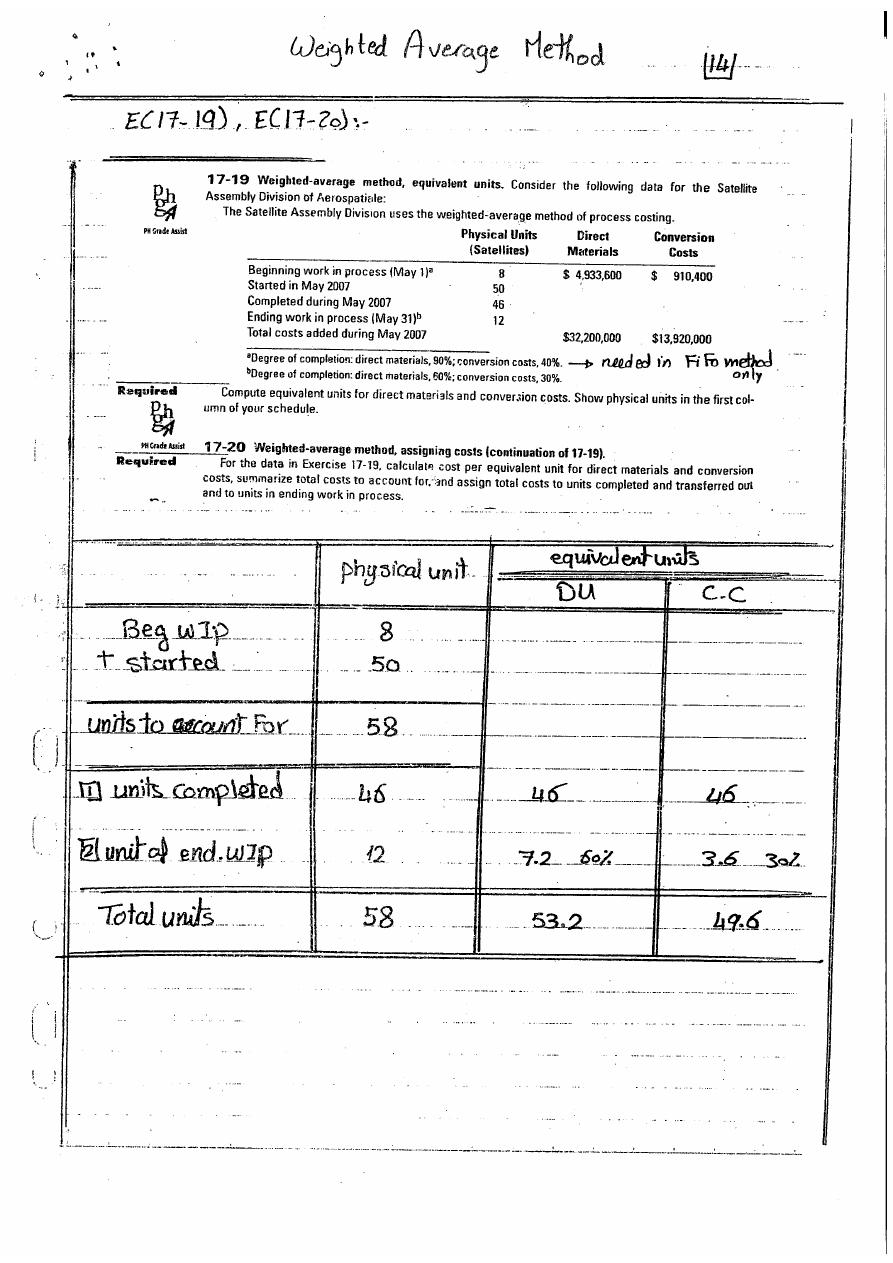 Weighted Average Method
14
E(17-19), E(17-20):-
17-19 Weighted-average method, equivalent units. Consider the following data for the Satellite
Assembly Division of Aerospatiale:
The Satellite Assembly Division uses the weighted-average method of process costing.
PH Grade Assist
Physical Units Direct Conversion
(Satellites) Materials Costs
Beginning work in process (May 1)a 8 $ 4,933,600 $ 910,400
Started in May 2007 50
Completed during May 2007 46
Ending work in process (May 31)b 12
Total costs added during May 2007 $32,200,000 $13,920,000
aDegree of completion: direct materials, 90%; conversion costs, 40%. → needed in FiFo method
only
bDegree of completion: direct materials, 60%; conversion costs, 30%.
Required Compute equivalent units for direct materials and conversion costs. Show physical units in the first col-
umn of your schedule.
PH Grade Assist 17-20 Weighted-average method, assigning costs (continuation of 17-19).
Required For the data in Exercise 17-19, calculate cost per equivalent unit for direct materials and conversion
costs, summarize total costs to account for, and assign total costs to units completed and transferred out
and to units in ending work in process.
physical unit equivalent units
DU C.C
Beg WIp 8
+ started 50
units to account For 58
1 units completed 46 46 46
2 unit of end.WIp 12 7.2 60% 3.6 30%
Total units 58 53.2 49.6